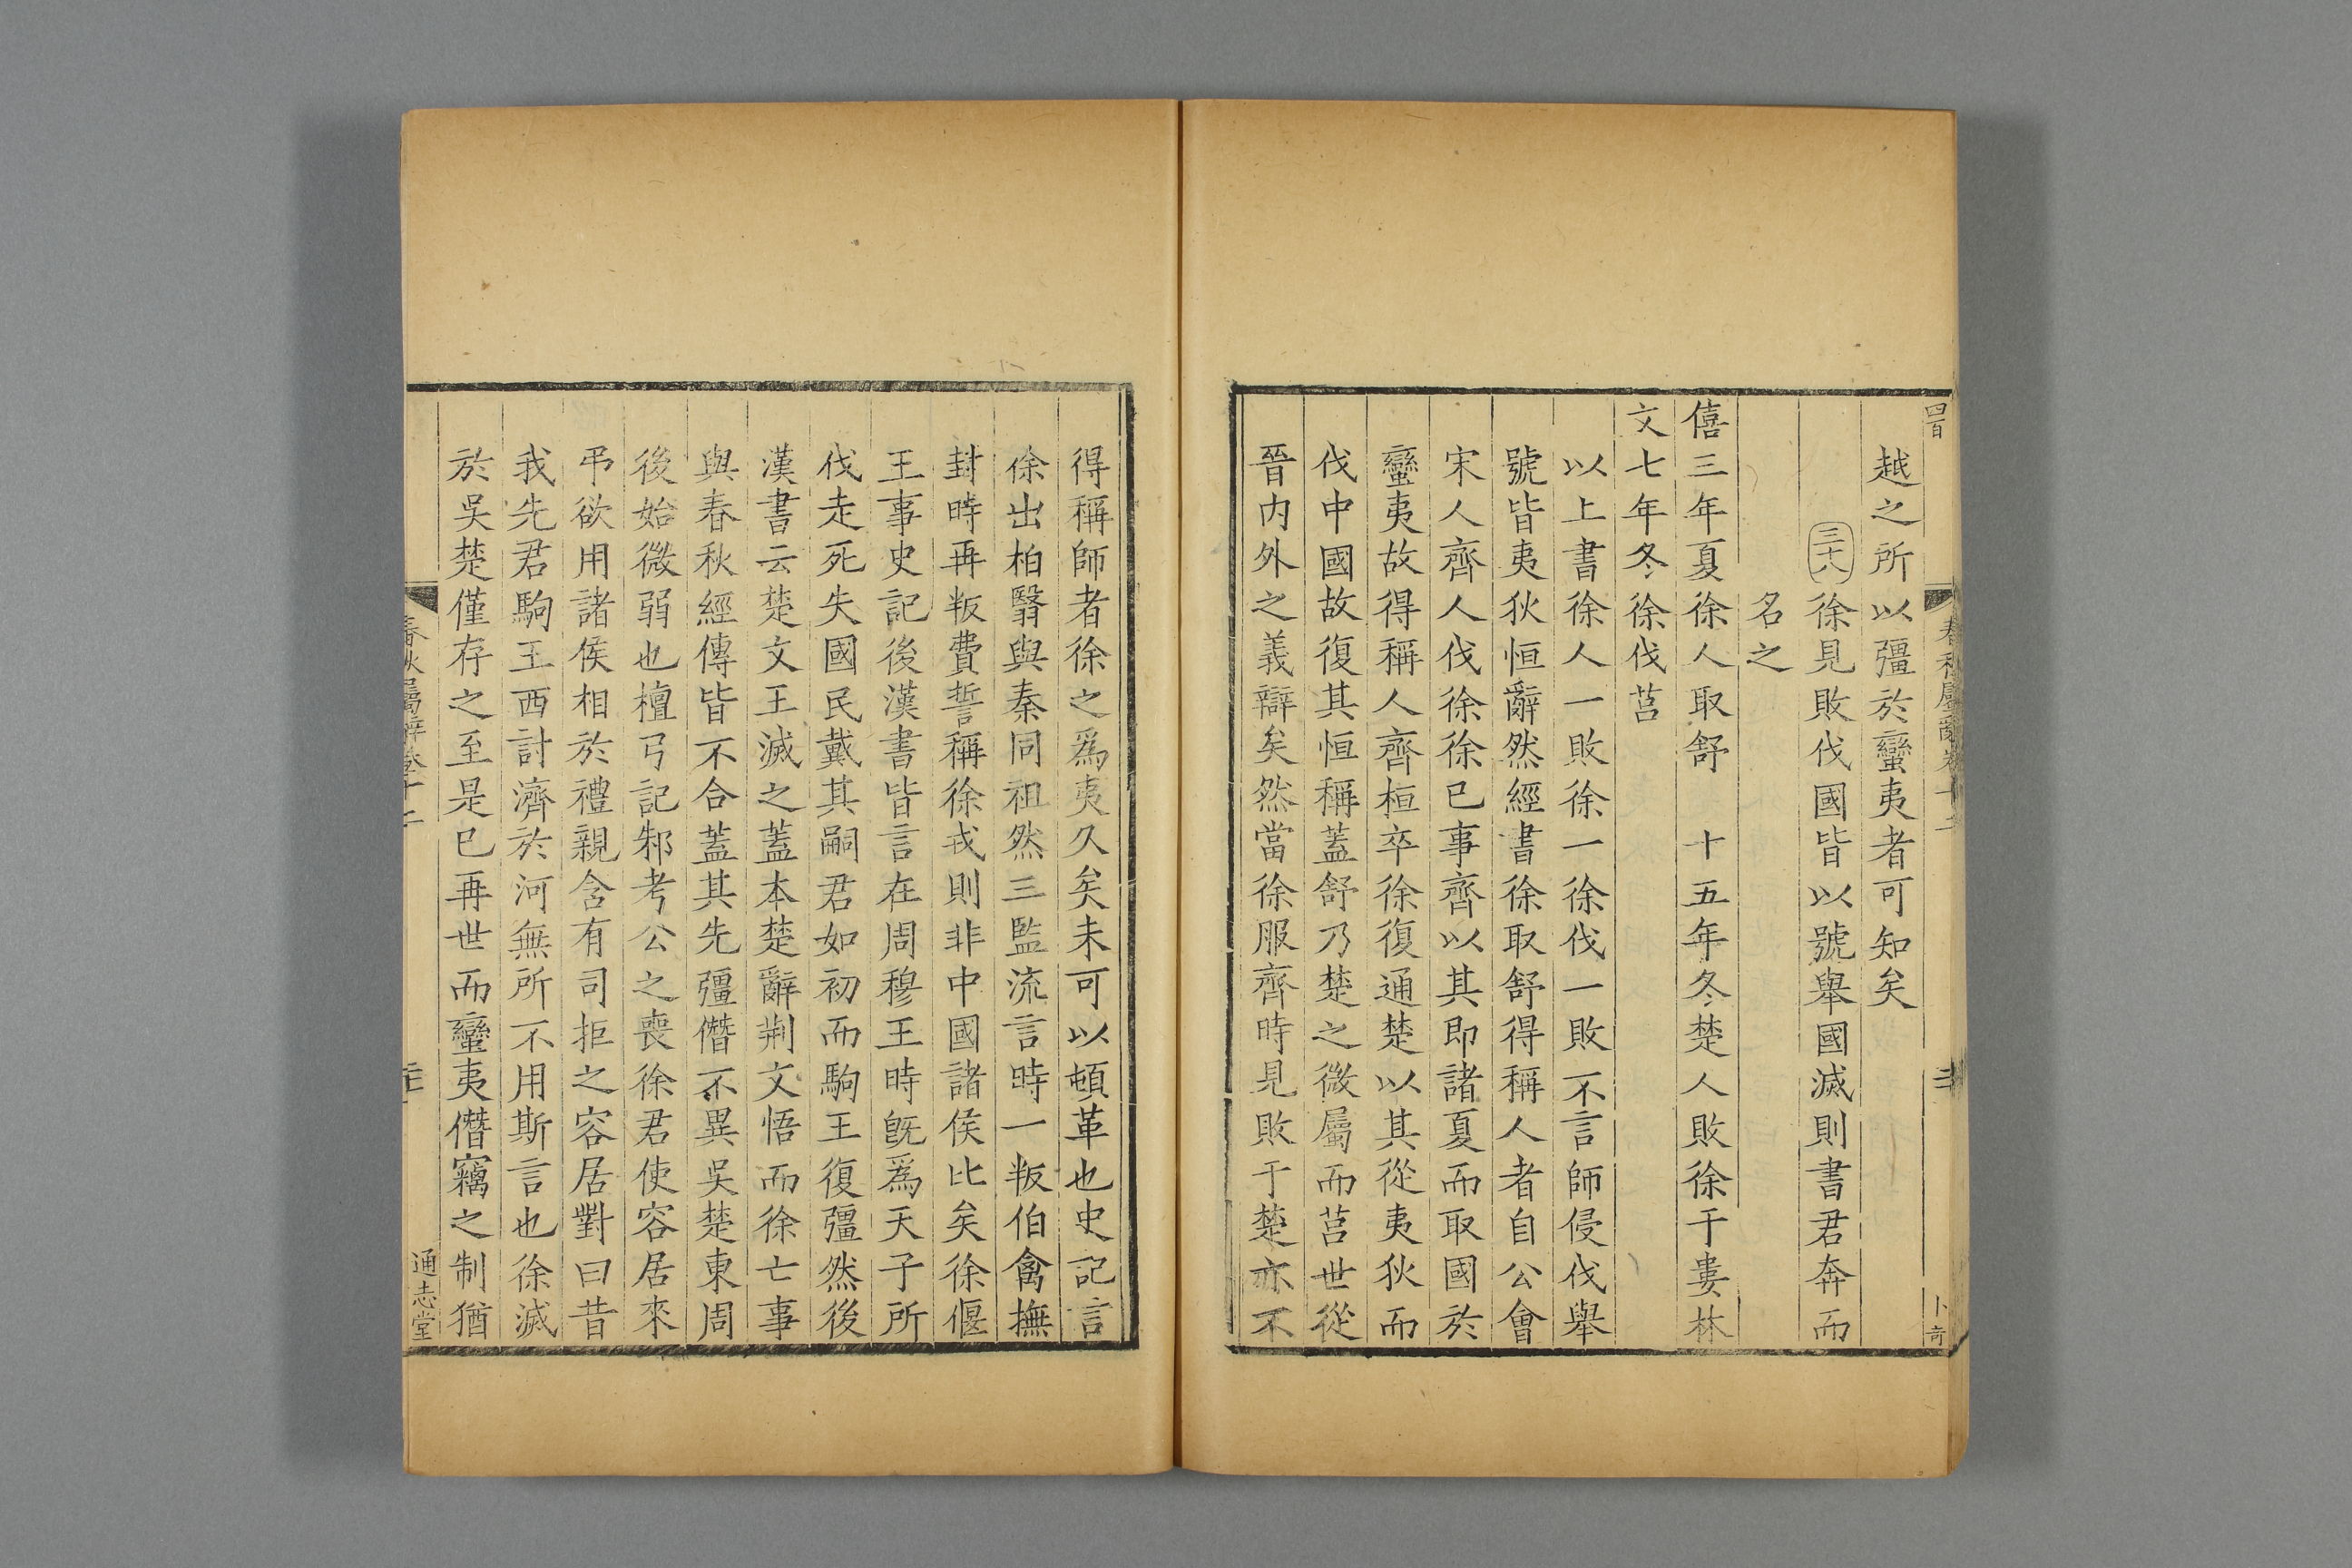 四百
越之所以彊於蠻夷者可知矣
三十八 徐見敗伐國皆以號舉國滅則書君奔而
名之
僖三年夏徐人取舒　十五年冬楚人敗徐于婁林
文七年冬徐伐莒
以上書徐人一敗徐一徐伐一敗不言師侵伐舉
號皆夷狄恒辭然經書徐取舒得稱人者自公會
宋人齊人伐徐徐已事齊以其即諸夏而取國於
蠻夷故得稱人齊桓卒徐復通楚以其從夷狄而
伐中國故復其恒稱蓋舒乃楚之微屬而莒世從
晉内外之義辯矣然當徐服齊時見敗于楚亦不
得稱師者徐之爲夷久矣未可以頓革也史記言
徐出柏翳與秦同祖然三監流言時一叛伯禽撫
封時再叛費誓稱徐戎則非中國諸侯比矣徐偃
王事史記後漢書皆言在周穆王時旣爲天子所
伐走死失國民戴其嗣君如初而駒王復彊然後
漢書云楚文王滅之蓋本楚辭荆文悟而徐亡事
與春秋經傳皆不合蓋其先彊僭不異吳楚東周
後始微弱也檀弓記邾考公之喪徐君使容居來
弔欲用諸侯相於禮親含有司拒之容居對曰昔
我先君駒王西討濟於河無所不用斯言也徐滅
於吳楚僅存之至是已再世而蠻夷僭竊之制猶
春秋屬辭卷十二
通志堂